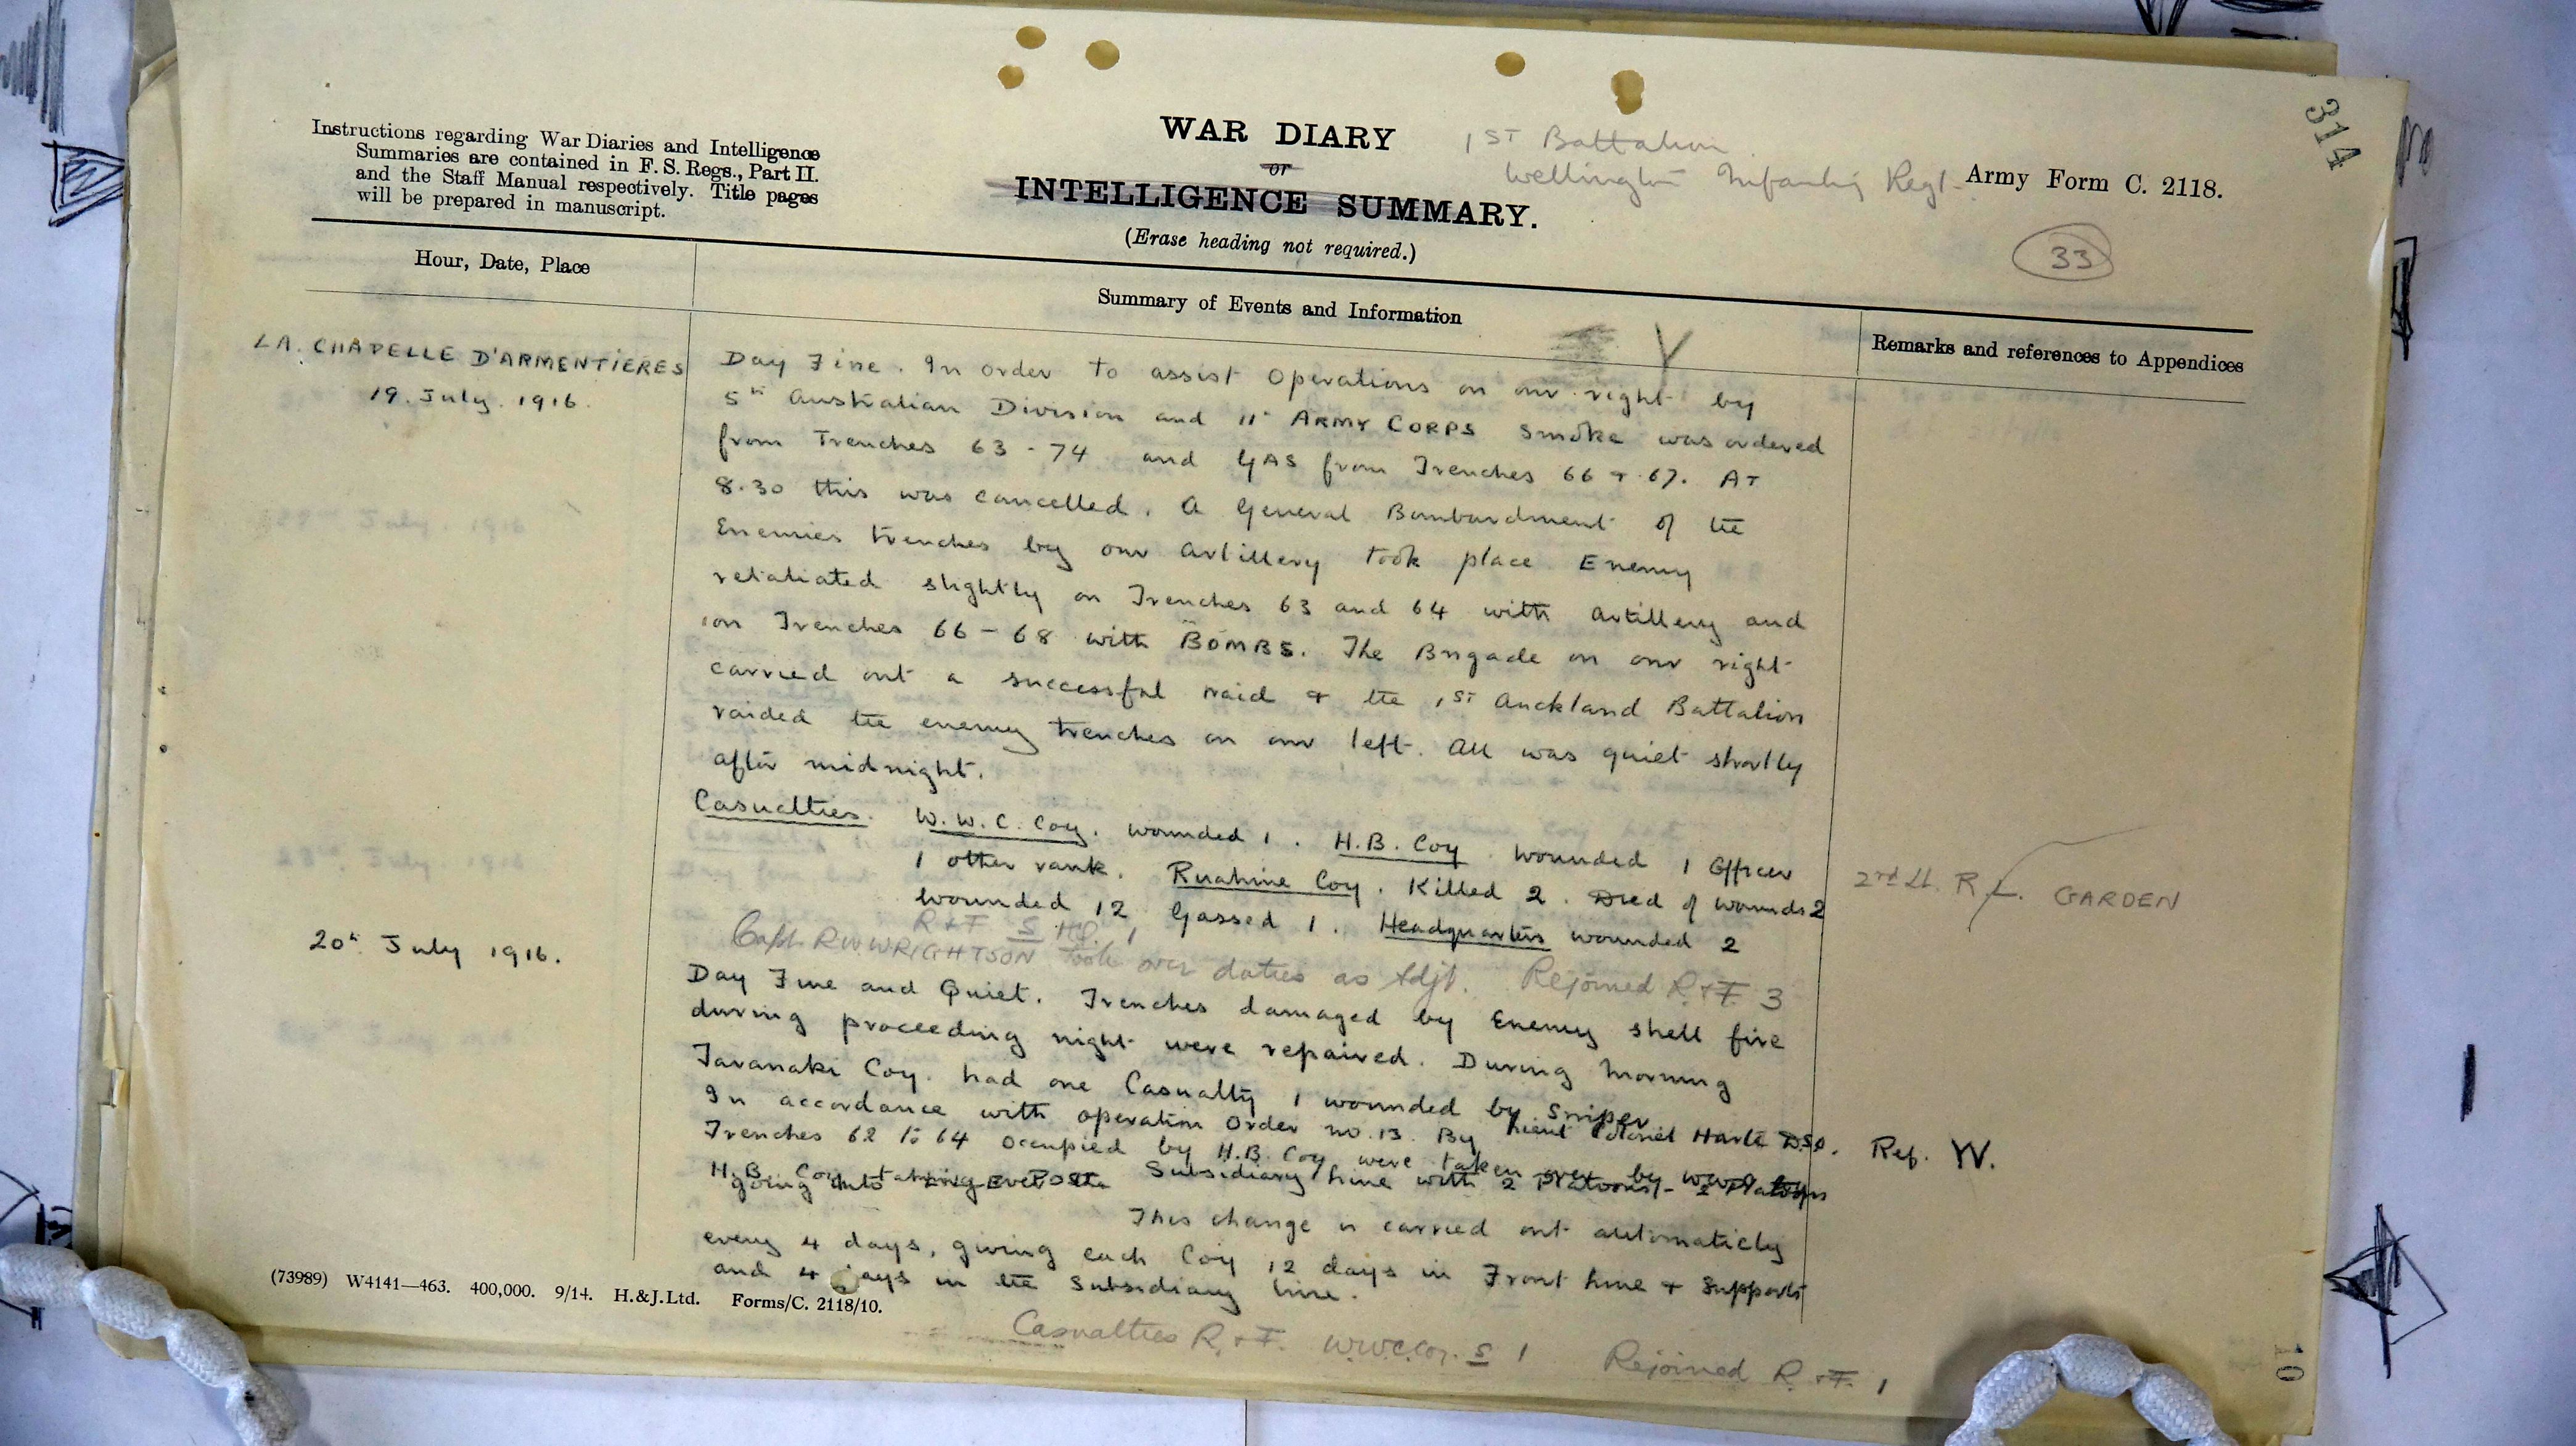 314
Instructions regarding War Diaries and Intelligence
Summaries are contained in F. S. Regs., Part II.
and the Staff Manual respectively. Title pages
will be prepared in manuscript.
WAR DIARY
or
INTELLIGENCE SUMMARY.
(Erase heading not required.)
1ST Battalion
Wellington Infantry Regt.
Army Form C. 2118.
33
Hour, Date, Place
Summary of Events and Information
Remarks and references to Appendices
LA. CHAPELLE D'ARMENTIERES
19. July. 1916.
Day Fine. In order to assist Operations on our right by
5th Australian Division and 11 ARMY CORPS smoke was ordered
from Trenches 63 - 74 and GAS from Trenches 66 + 67. AT
8.30 this was cancelled. A General Bombardment of the
Enemies trenches by our Artillery took place Enemy
retaliated slightly on Trenches 63 and 64 with artillery and
on Trenches 66 - 68 with BOMBS. The Brigade on our right
carried out a successful raid + the 1ST Auckland Battalion
raided the enemy trenches on our left. All was quiet shortly
after midnight.
Casualties. W.W.C. Coy. wounded 1. H.B. Coy wounded 1 Officer
1 other rank. Ruahine Coy. Killed 2. Died of wounds 2
wounded 12 Gassed 1. Headquarters wounded 2
2nd Lt. R. L. GARDEN
R+F S HQ. 1
Capt. R W WRIGHTSON took over duties as Adjt. Rejoined R+F 3
20th July 1916.
Day Fine and Quiet. Trenches damaged by Enemy shell fire
during proceeding night were repaired. During Morning
Taranaki Coy. had one Casualty 1 wounded by Sniper
In accordance with operation Order no. 13. By Lieut Colonel Hart DSO.
Ref. W.
Trenches 62 to 64 occupied by H.B. Coy were taken over by W.W.C.
H.B. Coy taking over the Subsidiary line with 2 Platoons - 2 Platoons
going into Posts
This change is carried out automaticly
every 4 days, giving each Coy 12 days in Front line + Supports
and 4 days in the Subsidiary line.
(73989) W4141—463. 400,000. 9/14. H.&J.Ltd. Forms/C. 2118/10.
Casualties R.+F. W.W.C.Coy. S 1 Rejoined R.+F. 1
10